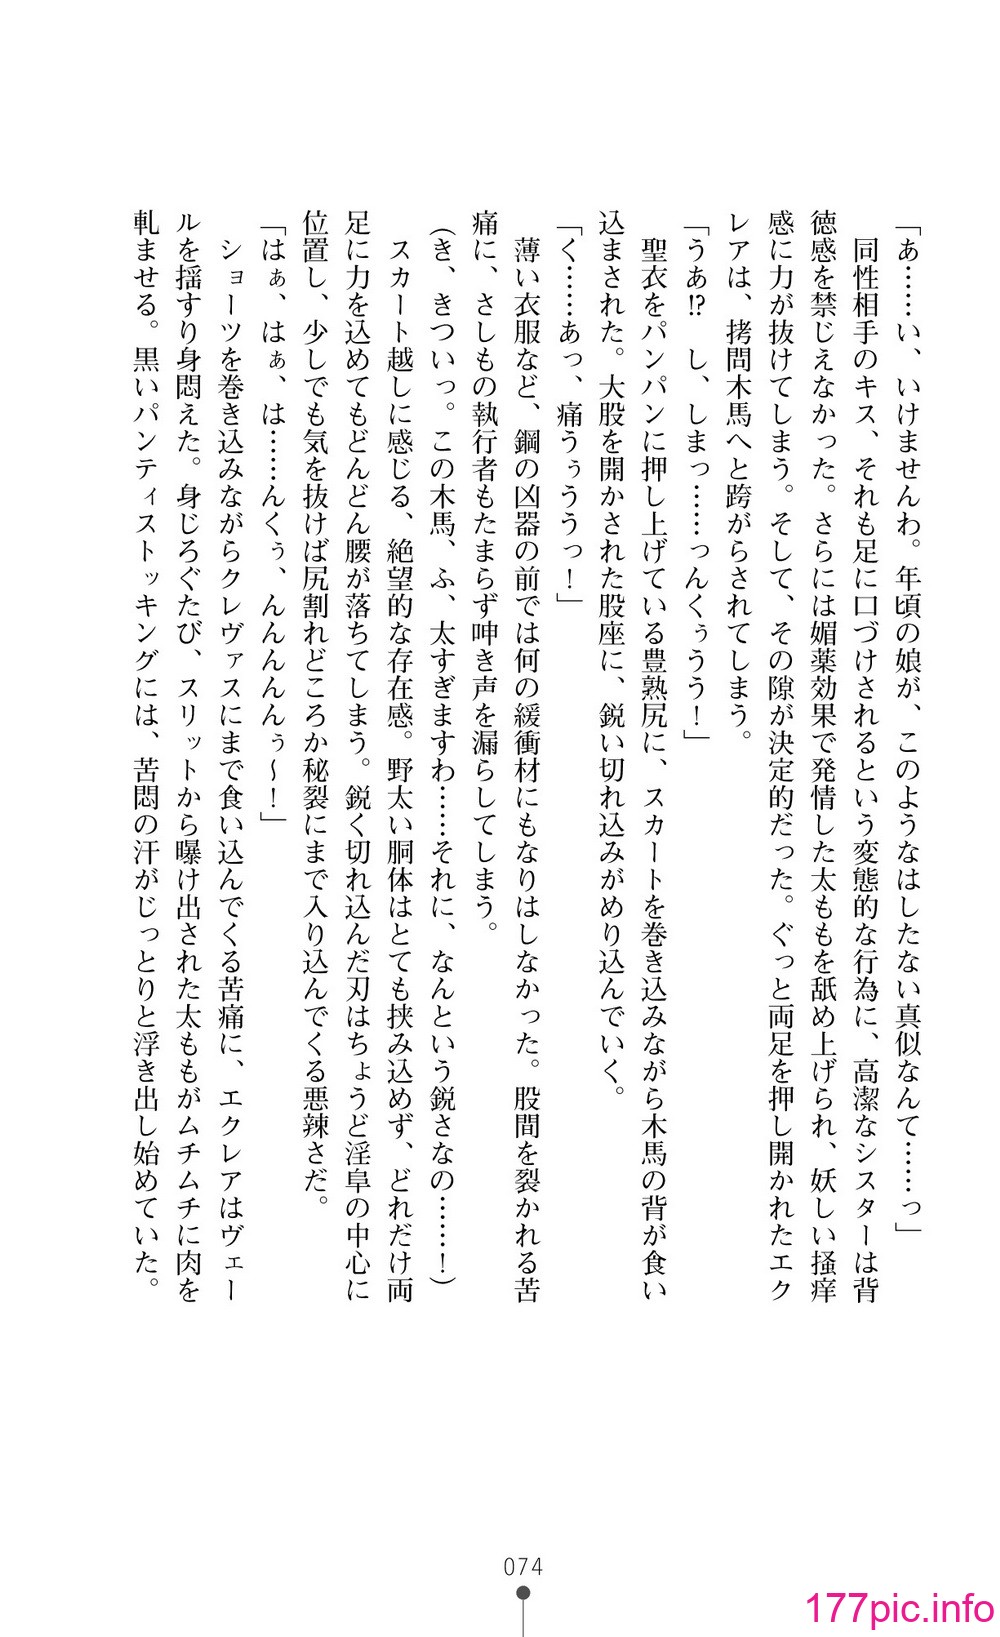 「あ……い、いけませんわ。年頃の娘が、このようなはしたない真似なんて……っ」
同性相手のキス、それも足に口づけされるという変態的な行為に、高潔なシスターは背
徳感を禁じえなかった。さらには媚薬効果で発情した太ももを舐め上げられ、妖しい掻痒
感に力が抜けてしまう。そして、その隙が決定的だった。ぐっと両足を押し開かれたエク
レアは、拷問木馬へと跨がらされてしまう。
「うあ!? し、しまっ……っんくぅうう！」
聖衣をパンパンに押し上げている豊熟尻に、スカートを巻き込みながら木馬の背が食い
込まされた。大股を開かされた股座に、鋭い切れ込みがめり込んでいく。
「く……あっ、痛うぅううっ！」
薄い衣服など、鋼の凶器の前では何の緩衝材にもなりはしなかった。股間を裂かれる苦
痛に、さしもの執行者もたまらず呻き声を漏らしてしまう。
（き、きついっ。この木馬、ふ、太すぎますわ……それに、なんという鋭さなの……！）
スカート越しに感じる、絶望的な存在感。野太い胴体はとても挟み込めず、どれだけ両
足に力を込めてもどんどん腰が落ちてしまう。鋭く切れ込んだ刃はちょうど淫阜の中心に
位置し、少しでも気を抜けば尻割れどころか秘裂にまで入り込んでくる悪辣さだ。
「はぁ、はぁ、は……んくぅ、んんんんぅ～！」
ショーツを巻き込みながらクレヴァスにまで食い込んでくる苦痛に、エクレアはヴェー
ルを揺すり身悶えた。身じろぐたび、スリットから曝け出された太ももがムチムチに肉を
軋ませる。黒いパンティストッキングには、苦悶の汗がじっとりと浮き出し始めていた。
074
177pic.info